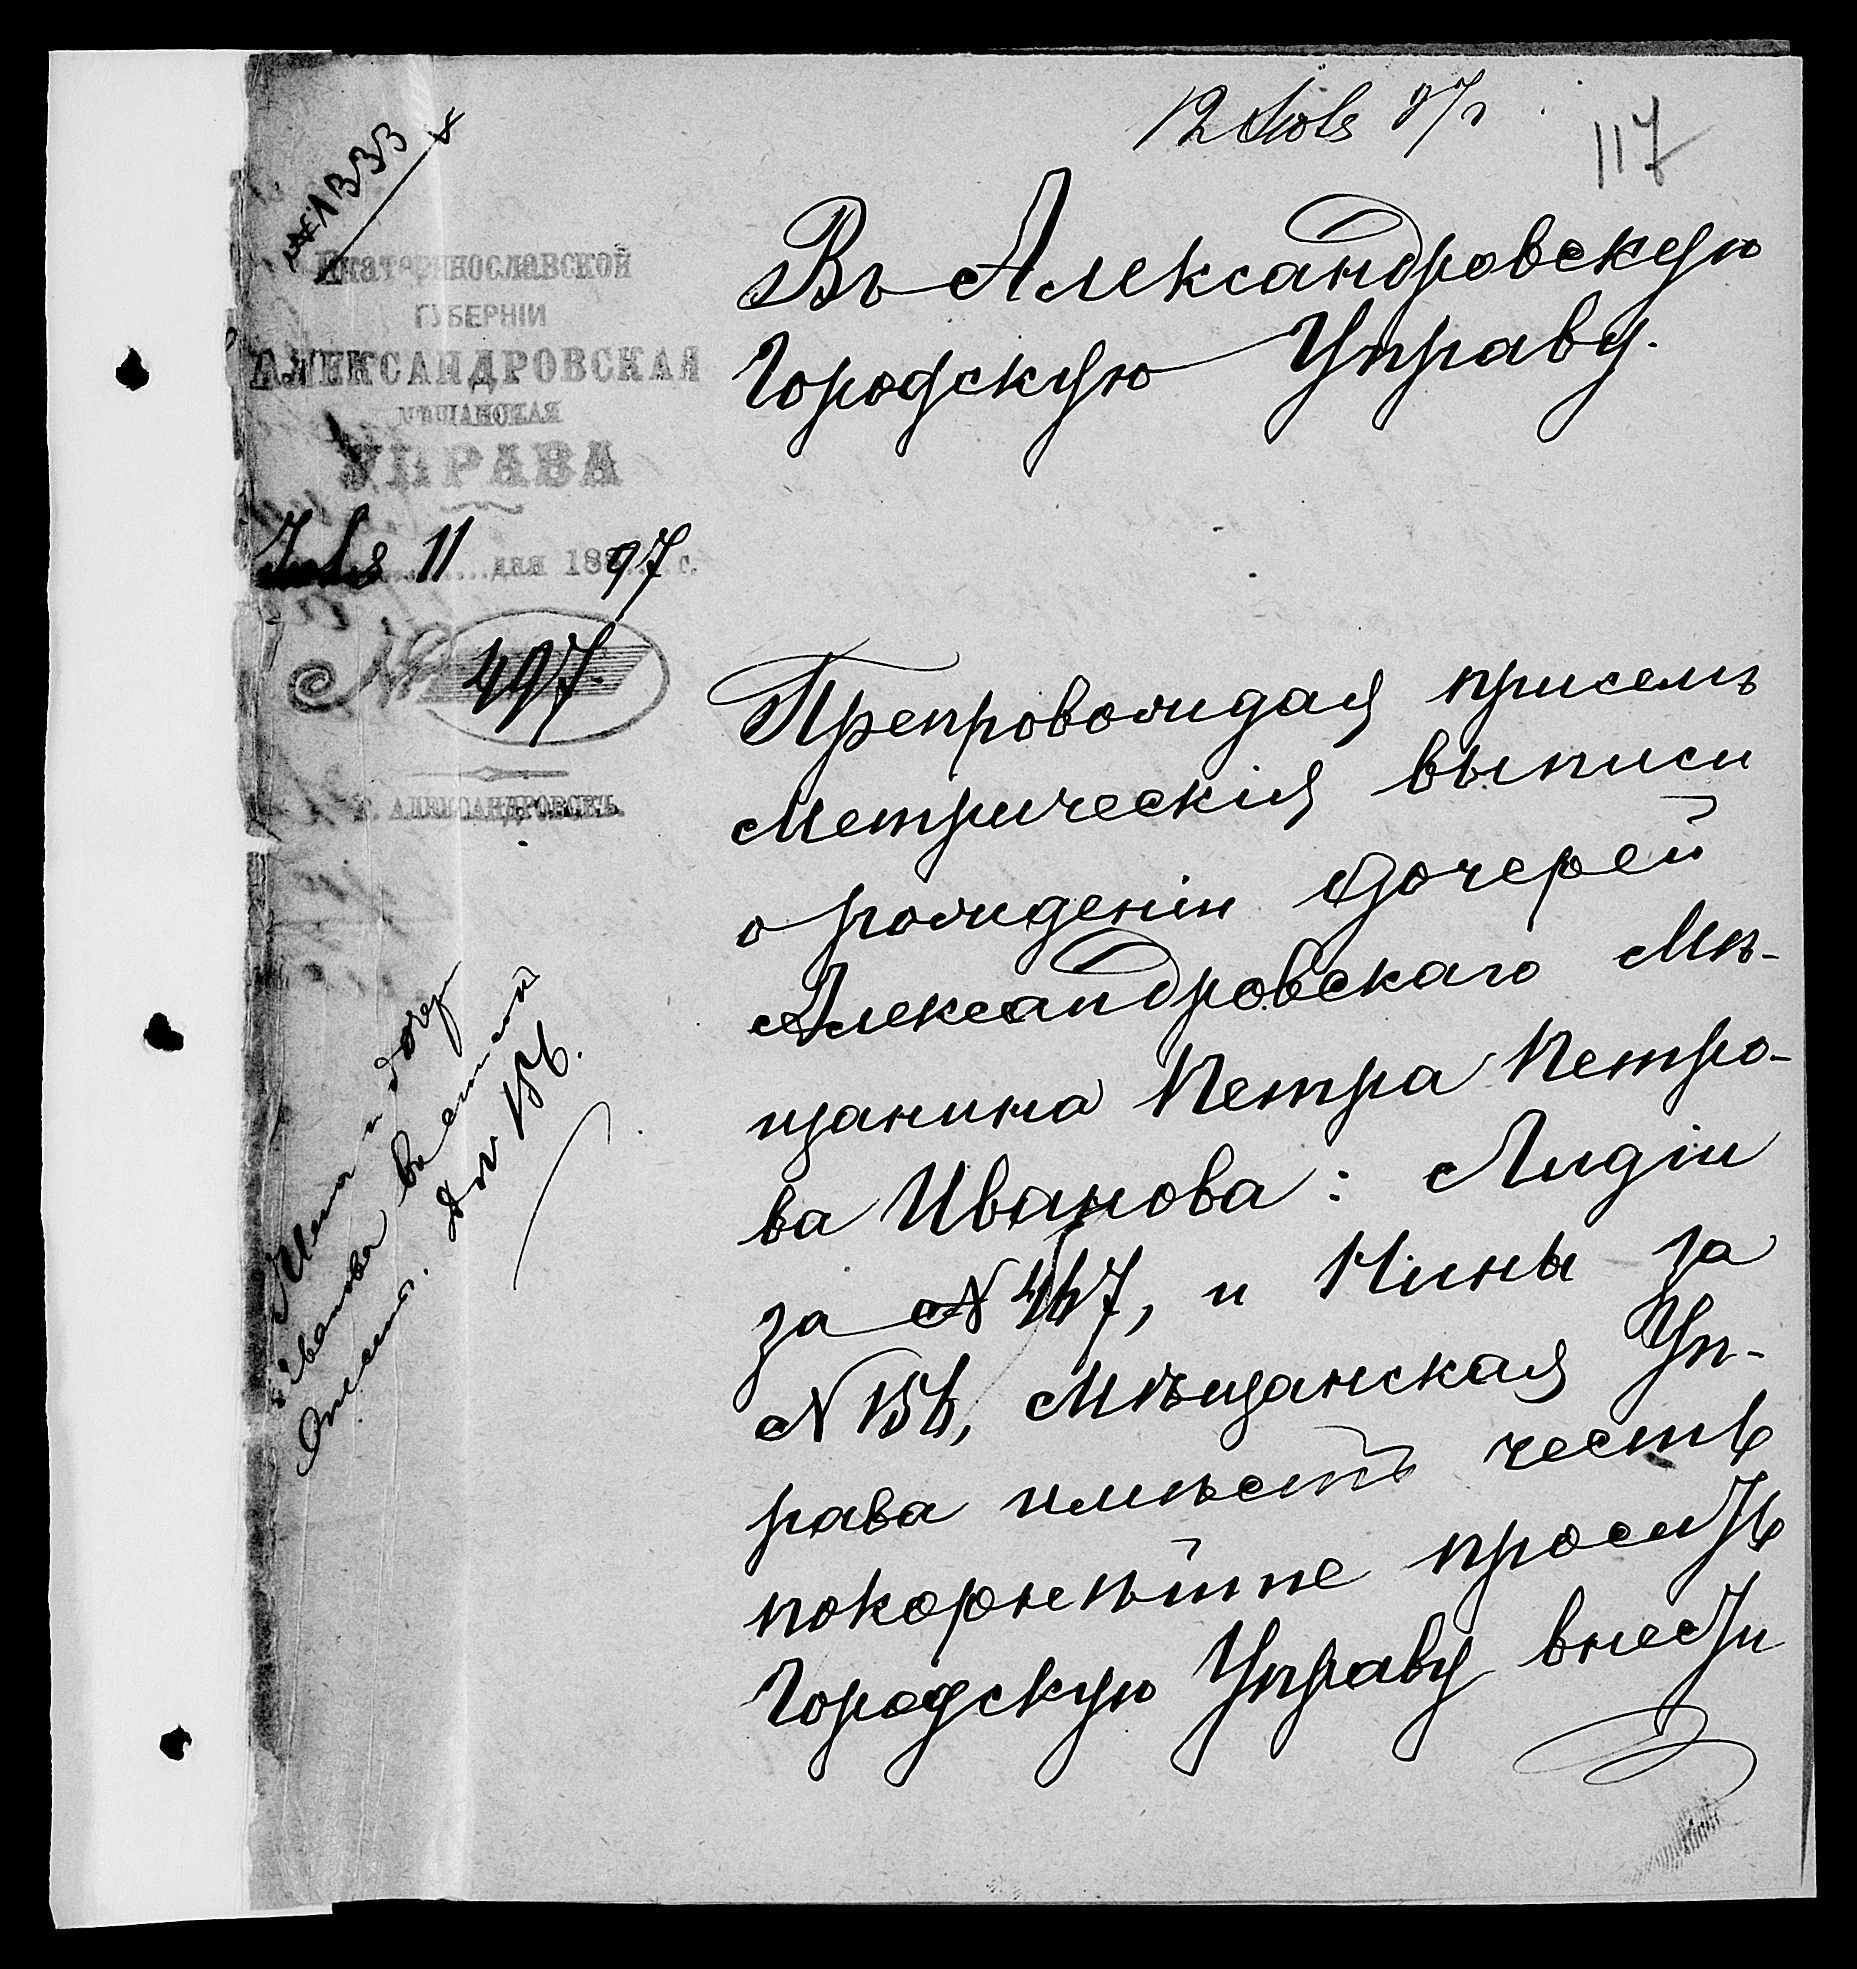 12 Іюля 97 г
117
№ 1333
Екатеринославской
ГУБЕРНІИ
АЛЕКСАНДРОВСКАЯ
МѢЩАНСКАЯ
УПРАВА
Іюля 11 дня 1897 г.
№ 497.
Г. АЛЕКСАНДРОВСКЪ.
Въ Александровскую
Городскую Управу.
Препровождая присемъ
метрическія выписи
о рожденіи дочерей
Александровскаго мѣ-
щанина Петра Петро-
ва Иванова: Лидіи
за № 467, и Нины за
№ 156, Мѣщанская Уп-
рава имѣетъ честь
покорнѣйше просить
Городскую Управу внести
Иванова
№ 156.